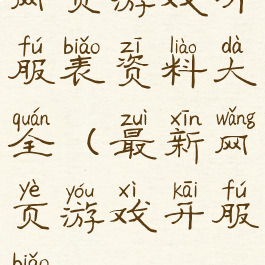 网页游戏开
fú biǎo zī liào dà
服表资料大
quán zuì xīn wǎng
全（最新网
yè yóu xì kāi fú
页游戏开服
biǎo